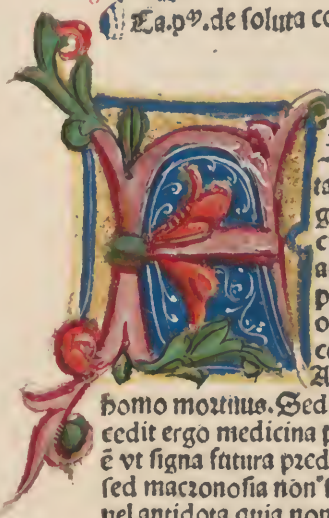 Ca.pᵒ. de soluta co
A
ta
g
c
a
p
o
co
A
homo mortuus. Sed
cedit ergo medicina p
ē vt signa futura pred
sed macronosia non
vel antidota quia non